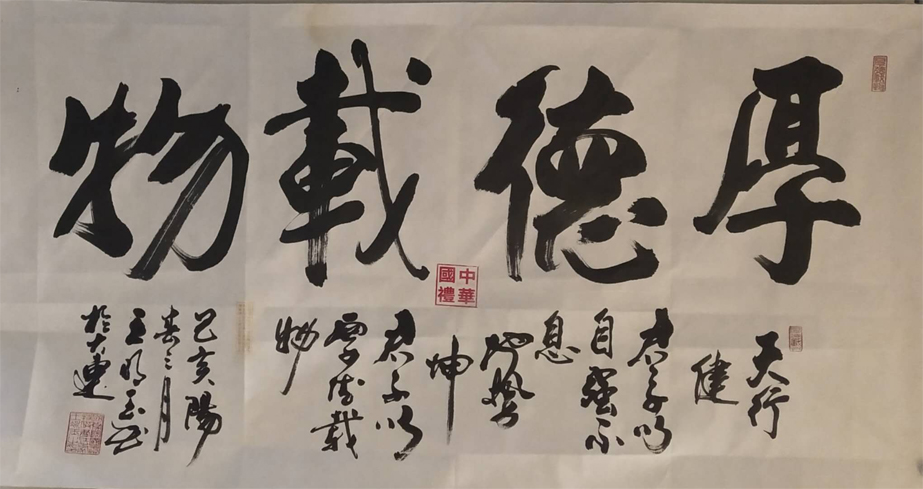 厚德載物
天行
健
君子以
自强不
息
地勢
坤
君子以
厚德載
物
己亥陽
春三月
王明玉书
於大連
中華
國禮